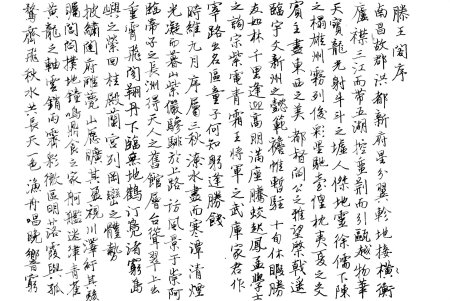 滕王閣序
南昌故郡洪都新府星分翼軫地接橫衡
廬襟三江而帶五湖控蠻荊而引甌越物華
天寶龍光射斗牛之墟人傑地靈徐儒下陳
之榻雄州霧列俊彩星馳臺隍枕夷夏之交
賓主盡東南之美都督閻公之雅望棨戟遙
臨宇文新州之懿範襜帷暫駐十旬休暇勝
友如林千里逢迎高朋滿座騰蛟起鳳孟學士
之詞宗紫電青霜王將軍之武庫家君作
宰路出名區童子何知躬逢勝餞
時維九月序屬三秋潦水盡而寒潭清煙
光凝而暮山紫儼驂騑於上路訪風景于崇阿
臨帝子之長洲得天人之舊館層台聳翠上出
重霄飛閣翔丹下臨無地鶴汀鳧渚窮島
嶼之縈回桂殿蘭宮列岡巒之體勢
披繡闥俯雕甍山原曠其盈視川澤紆其駭
矚閭閻撲地鐘鳴鼎食之家舸艦迷津青雀
黃龍之軸雲銷雨霽彩徹區明落霞與孤
鶩齊飛秋水共長天一色漁舟唱晚響窮